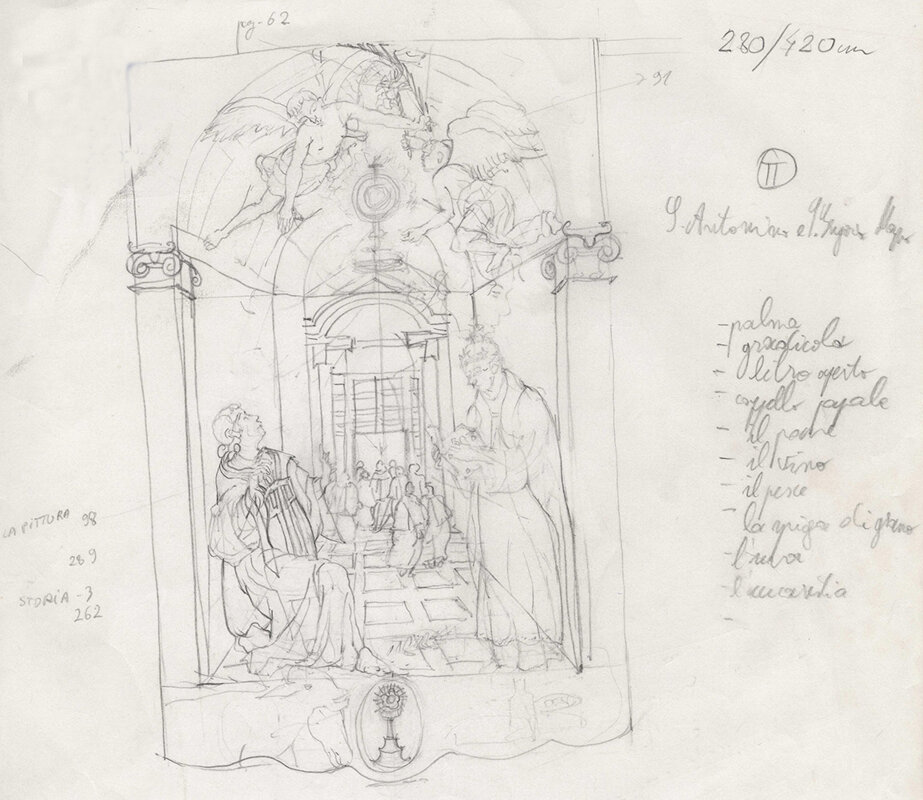 pag-62
280/420cm
91
II
S. Antonino e S.
-palma
-graticola
-libro aperto
-cappello papale
-il pane
-il vino
-il pesce
-la spiga di grano
-l'uva
-l'eucarestia
-
LA PITTURA 98
289
STORIA-3
262